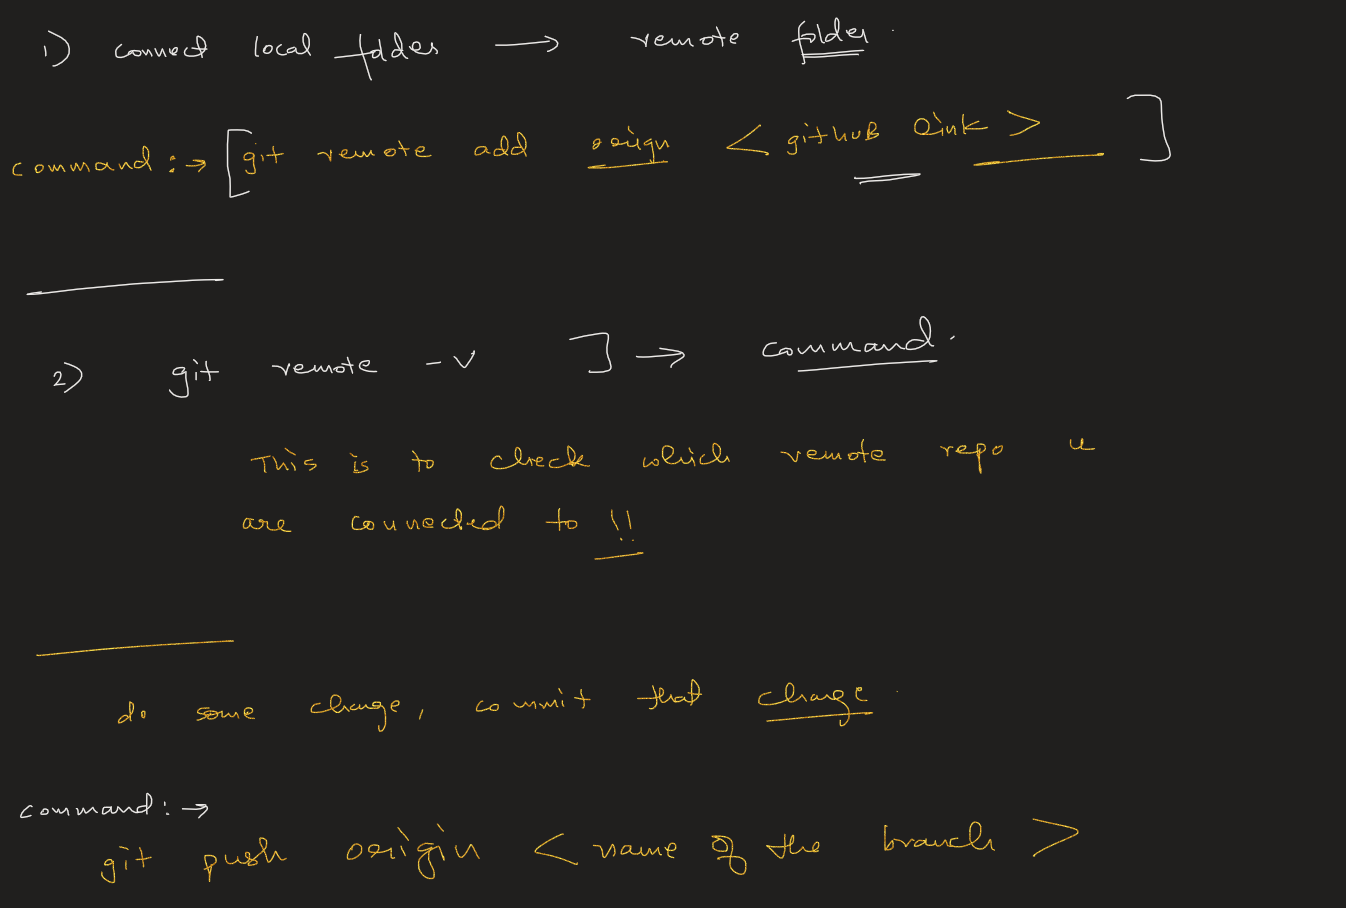 1) connect local folder → remote folder.
command :→ [git remote add origin < gitHuB link > ]
2) git remote -v ] → command.
This is to check which remote repo u
are connected to !!
do some change, commit that change.
command :→
git push origin < name of the branch >